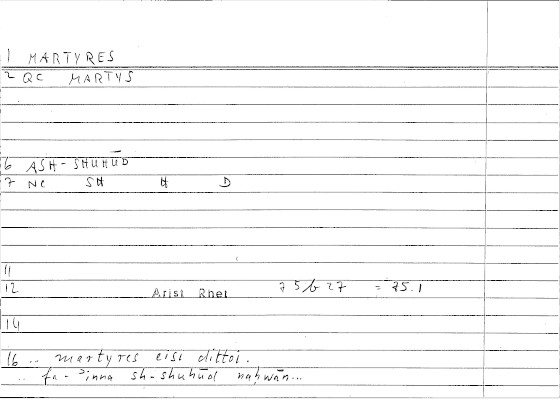 1 MARTYRES
2 QC MARTYS
6 ASH-SHUHŪD
7 NC SH H D
11
12 Arist Rhet 75b27 = 75.1
14
16 .. martyres eisi dittoi.
.. fa-ʾinna sh-shuhūd naḥwān...